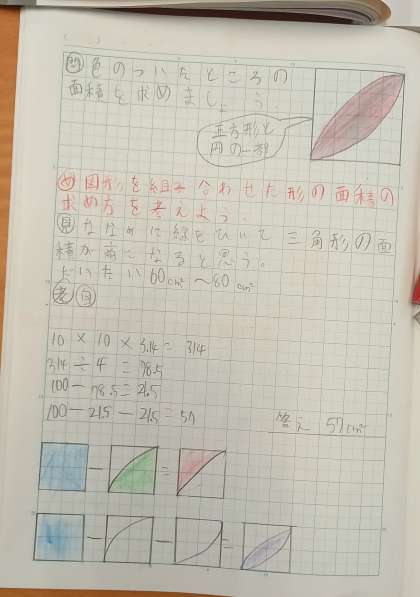 問 色のついたところの
面積を求めましょう。
正方形と
円の一部
め 図形を組み合わせた形の面積の
求め方を考えよう。
見 ななめに線をひいて 三角形の面
積が 前になると思う。
だいたい 60cm² 〜 80cm²
考 自
10 × 10 × 3.14 = 314
314 ÷ 4 = 78.5
100 − 78.5 = 21.5
100 − 21.5 − 21.5 = 57
答え 57cm²
− =
− − =